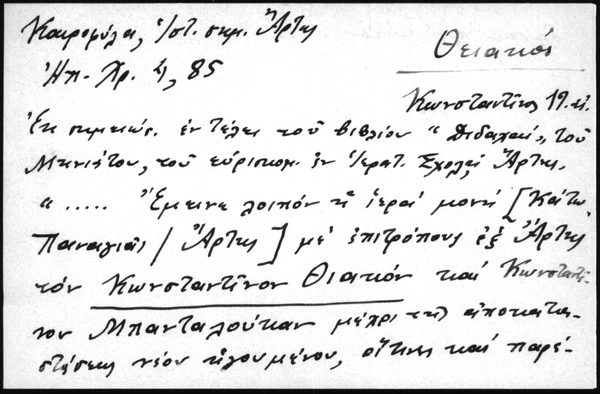 Καιροφύλα, Ἱστ. σημ. Ἄρτης
Θειακός
Ἠπ. Χρ. 4, 85
Κωνσταντῖνος 19 αἰ.
Ἐκ σημειώσ. ἐν τέλει τοῦ βιβλίου "Διδαχαί", τοῦ
Μηνιάτου, τοῦ εὑρισκομ. ἐν Ἱερατ. Σχολῇ Ἄρτης.
"..... Ἔμεινε λοιπόν ἡ ἱερά μονή [Κάτω
Παναγιᾶς / Ἄρτης] μέ ἐπιτρόπους ἐξ Ἄρτης
τόν Κωνσταντῖνον Θιακόν καί Κωνσταντῖ-
νον Μπανταλούκαν μέχρι τῆς ἀποκατα-
στάσεως νέου ἡγουμένου, οἵτινες καί παρέ-